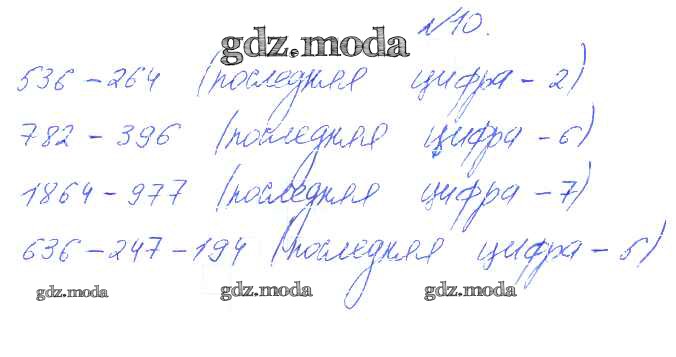 №10.
gdz.moda
536 - 264 (последняя цифра - 2)
782 - 396 (последняя цифра - 6)
1864 - 977 (последняя цифра - 7)
636 - 247 - 194 (последняя цифра - 5)
gdz.moda gdz.moda gdz.moda